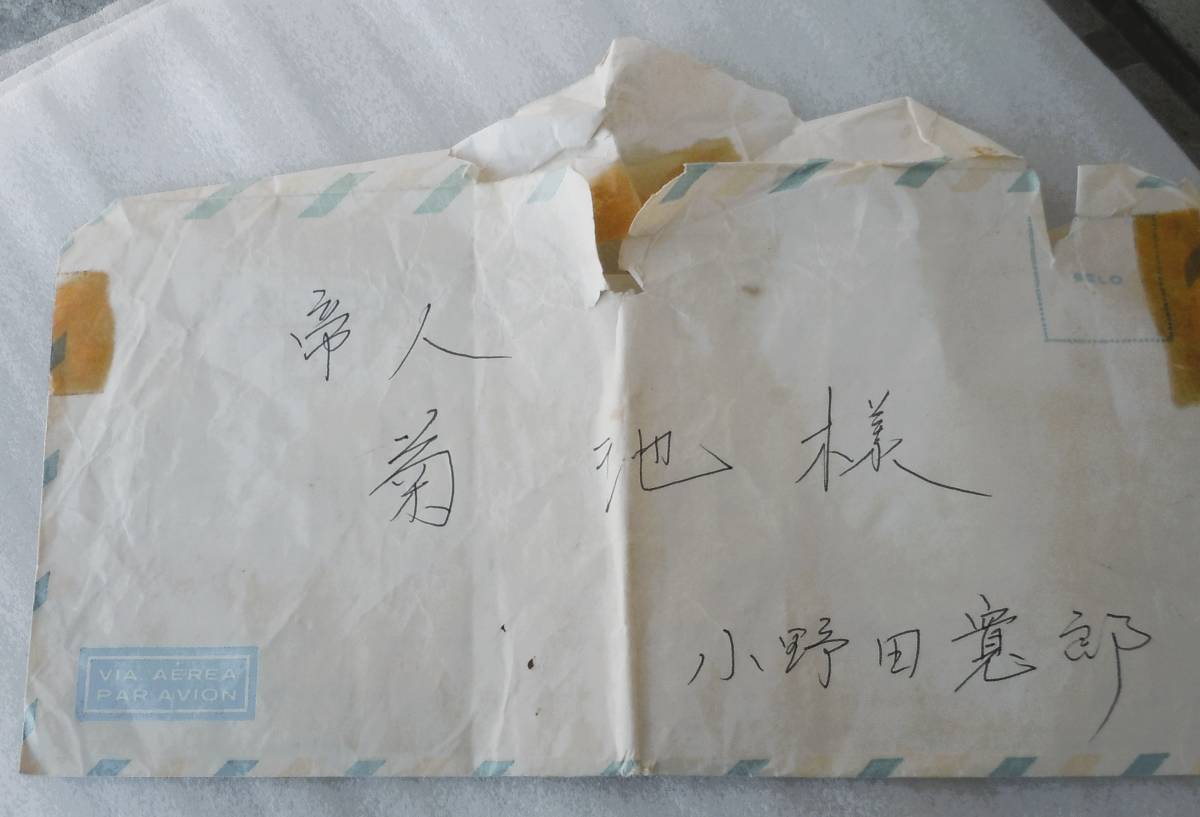 SELO
帝人
菊池様
小野田寛郎
VIA AÉREA
PAR AVION